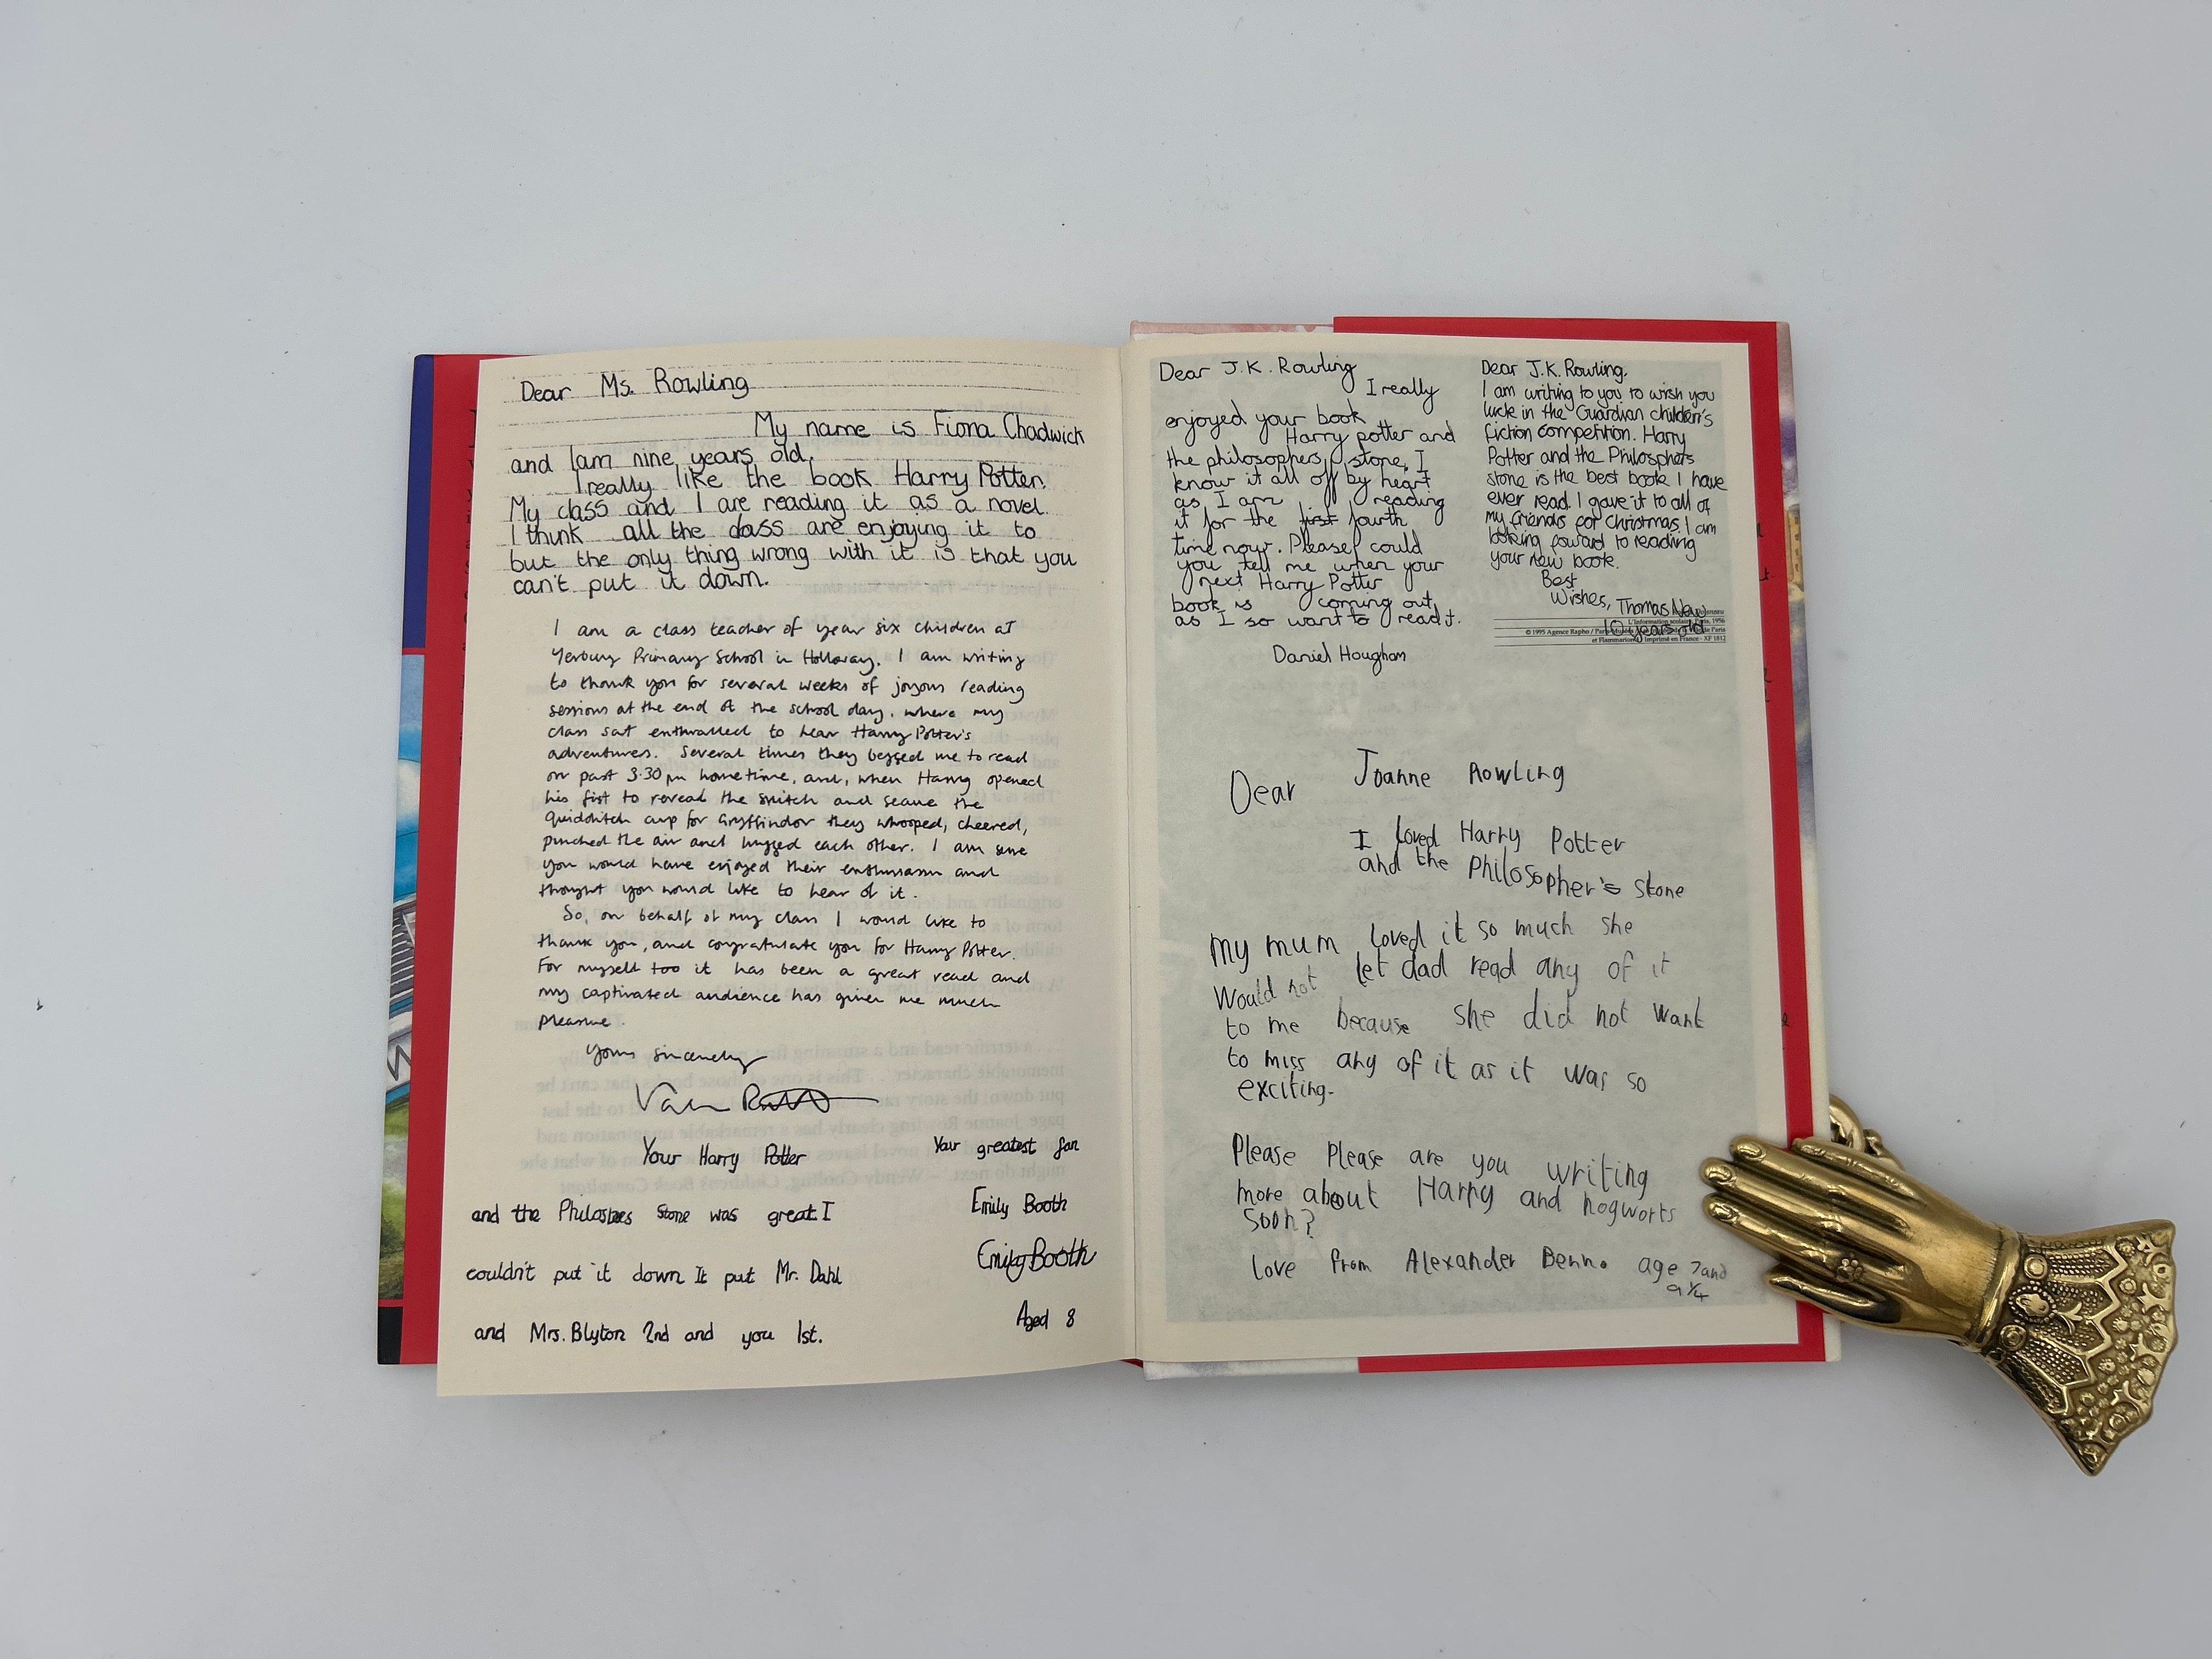 Dear Ms. Rowling
My name is Fiona Chadwick
and I am nine years old.
I really like the book Harry Potter.
My class and I are reading it as a novel.
I think all the class are enjoying it to
but the only thing wrong with it is that you
can't put it down.
I am a class teacher of year six children at
Yerbury Primary School in Holloway. I am writing
to thank you for several weeks of joyous reading
sessions at the end of the school day, where my
class sat enthralled to hear Harry Potter's
adventures. Several times they begged me to read
on past 3.30 pm hometime, and, when Harry opened
his fist to reveal the snitch and secure the
Quidditch cup for Gryffindor they whooped, cheered,
punched the air and hugged each other. I am sure
you would have enjoyed their enthusiasm and
thought you would like to hear of it.
So, on behalf of my class I would like to
thank you, and congratulate you for Harry Potter.
For myself too it has been a great read and
my captivated audience has given me much
pleasure.
Yours sincerely
Your Harry Potter
and the Philosphes Stone was great I
couldn't put it down It put Mr. Dahl
and Mrs. Blyton 2nd and you 1st.
Your greatest fan
Emily Booth
Emily Booth
Aged 8
Dear J.K. Rowling
I really
enjoyed your book
Harry potter and
the philosophers stone, I
know it all off by heart
as I am reading
it for the first fourth
time now. Please could
you tell me when your
next Harry Potter
book is coming out
as I so want to read it.
Daniel Hougham
Dear J.K. Rowling,
I am writing to you to wish you
luck in the Guardian children's
fiction competition. Harry
Potter and the Philosphers
stone is the best book I have
ever read. I gave it to all of
my friends for Christmas. I am
looking foward to reading
your new book.
Best
Wishes, Thomas New
10 years old
Paris, 1956
© 1995 Agence Rapho / Paris
et Flammarion Imprimé en France - XF 1812
Dear Joanne Rowling
I loved Harry Potter
and the Philosopher's stone
My mum loved it so much she
would not let dad read any of it
to me because she did not want
to miss any of it as it was so
exciting.
Please Please are you writing
more about Harry and hogworts
soon?
Love from Alexander Benn. age 7 and
a 1/4